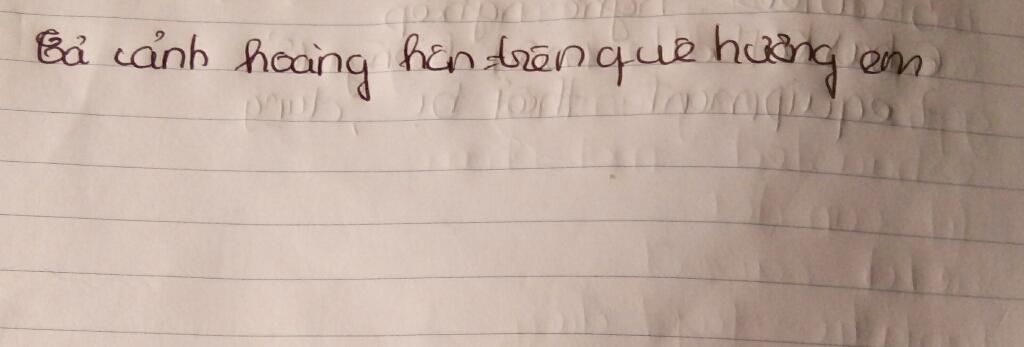 Tả cảnh hoàng hôn trên quê hương em